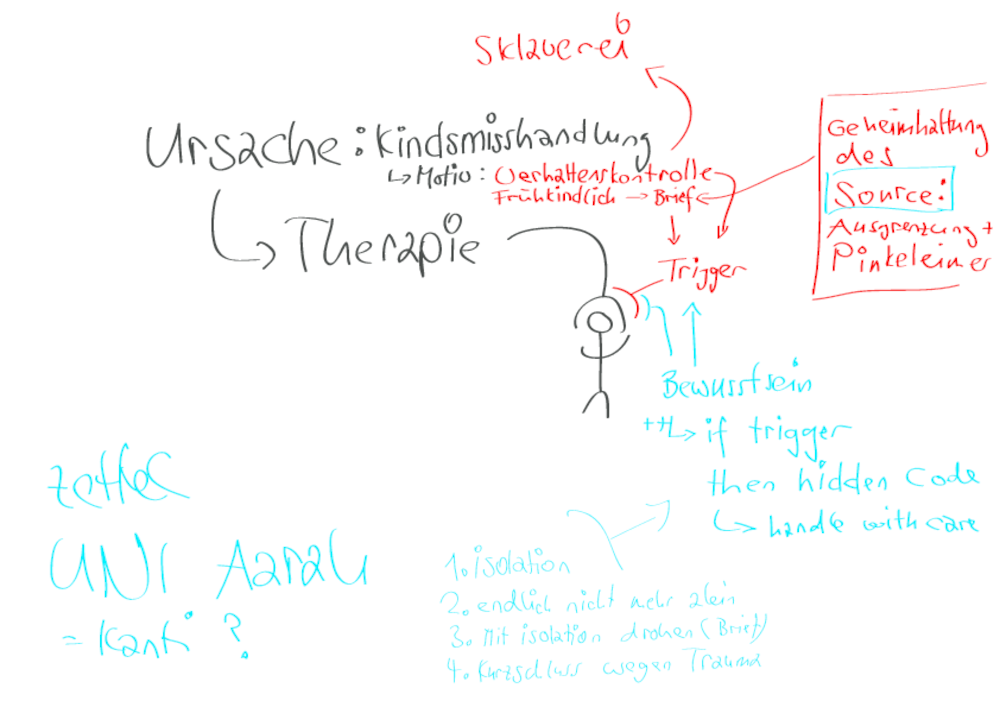 Sklaverei
6
Ursache: Kindsmisshandlung
↳ Motiv: Verhaltenskontrolle
Frühkindlich → Brief
Geheimhaltung
des
Source:
Ausgrenzung +
Pinkeleimer
↳ Therapie
Trigger
Bewusstsein
++↳ if trigger
then hidden Code
↳ handle with care
UNI Aarau
= Kanti ?
1. isolation
2. endlich nicht mehr alein
3. Mit isolation drohen (Brief)
4. Kurzschluss wegen Trauma